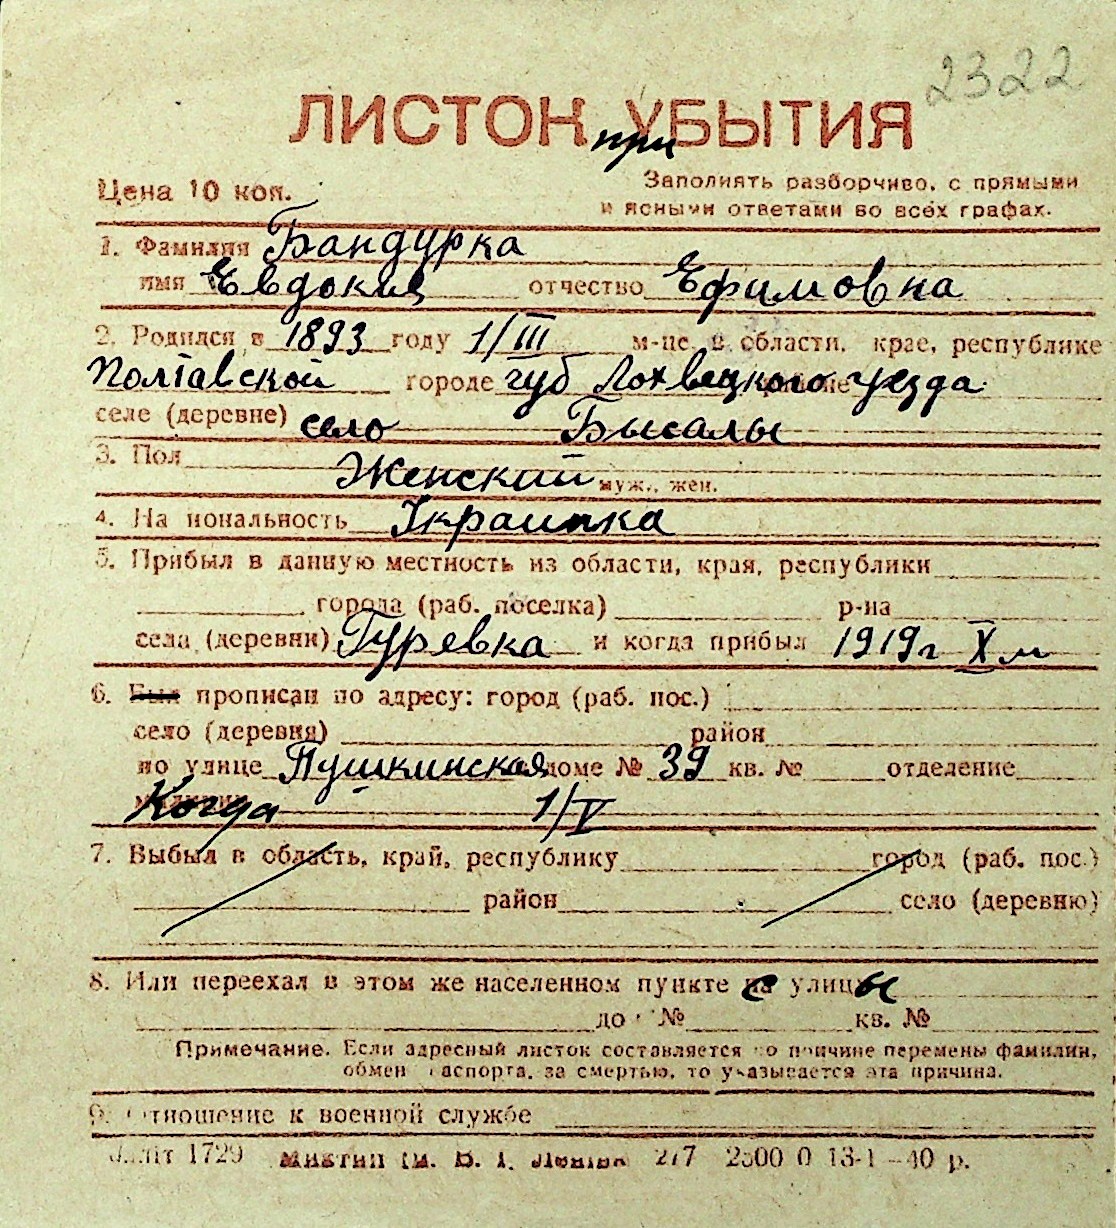 2322
ЛИСТОК УБЫТИЯ
при
Цена 10 коп.
Заполнять разборчиво, с прямыми
и ясными ответами во всех графах.
1. Фамилия Бандурка
имя Евдокия отчество Ефимовна
2. Родился в 1893 году 1/III м-це, в области, крае, республике
Полтавской городе губ Лохвецкого уезда
селе (деревне) село Бысалы
3. Пол Женский муж., жен.
4. Национальность Украинка
5. Прибыл в данную местность из области, края, республики
города (раб. поселка) р-на
села (деревни) Гуревка и когда прибыл 1919 г X м
6. Был прописан по адресу: город (раб. пос.)
село (деревня) район
по улице Пушкинская доме № 39 кв. № отделение
Когда 1/V
7. Выбыл в область, край, республику город (раб. пос.)
район село (деревню)
8. Или переехал в этом же населенном пункте с улицы
до № кв. №
Примечание. Если адресный листок составляется по причине перемены фамилии,
обмен паспорта, за смертью, то указывается эта причина.
9. Отношение к военной службе
1729 2500 0 13-1-40 р.